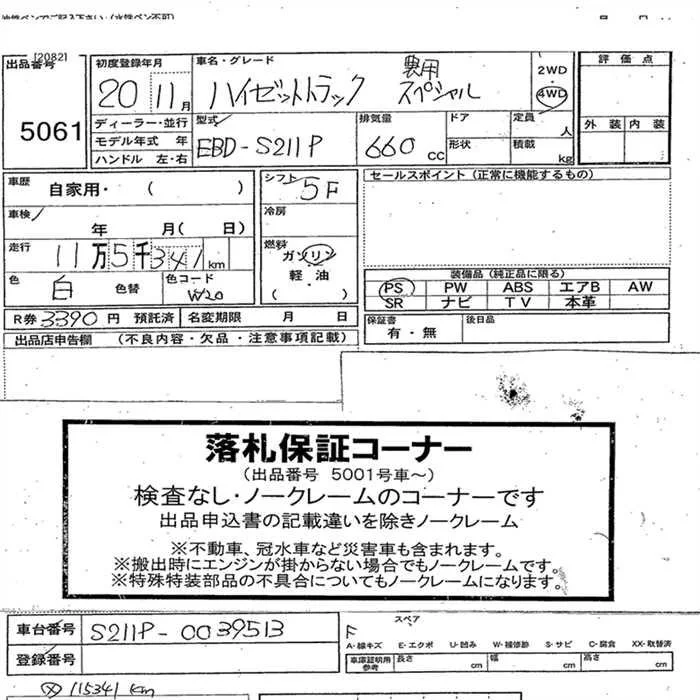 [2082]
出品番号 初度登録年月 車名・グレード 評価点
20 11月 ハイゼットトラック 農用 スペシャル 2WD 4WD
5061 ディーラー・並行 型式 排気量 ドア 定員 人 外装 内装
モデル年式 年 EBD-S211P 660 cc 形状 積載 kg
ハンドル 左・右
車歴 自家用・ ( ) シフト 5F セールスポイント (正常に機能するもの)
車検 年 月( 日) 冷房
走行 11万5千341km 燃料 ガソリン 軽・油 ( )
色 白 色替 色コード W20
装備品 (純正品に限る)
PS PW ABS エアB AW
SR ナビ TV 本革
R券 3390 円 預託済 名変期限 月 日 保証書 有・無 後日品
出品店申告欄 (不良内容・欠品・注意事項記載)
落札保証コーナー
(出品番号 5001号車~)
検査なし・ノークレームのコーナーです
出品申込書の記載違いを除きノークレーム
※不動車、冠水車など災害車も含まれます。
※搬出時にエンジンが掛からない場合でもノークレームです。
※特殊特装部品の不具合についてもノークレームになります。
車台番号 S211P-0039513 スペア
F
A-線キズ E-エクボ U-凹み W-補修跡 S-サビ C-腐食 XX-取替済
登録番号 車庫証明用参考 長さ cm 幅 cm 高さ cm
115341 km